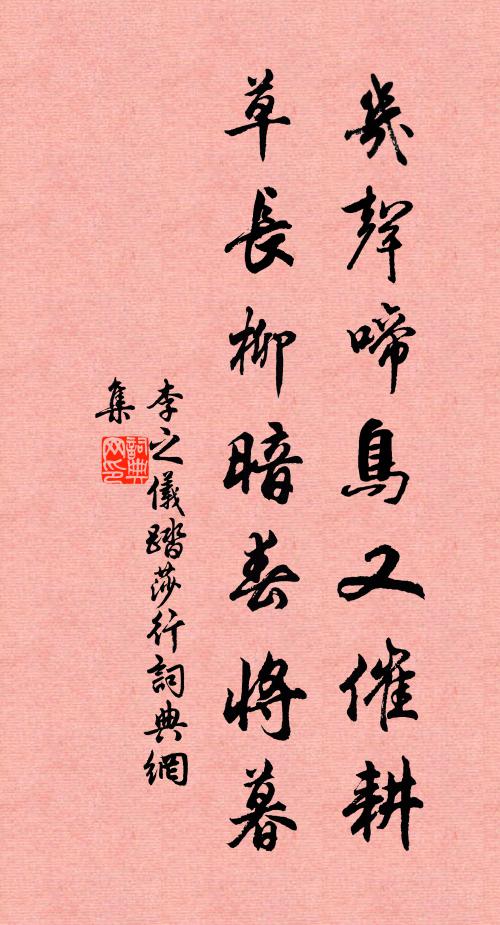 幾聲啼鳥又催耕
草長柳暗春將暮
李之儀踏莎行詞典網
集
詞典
网印